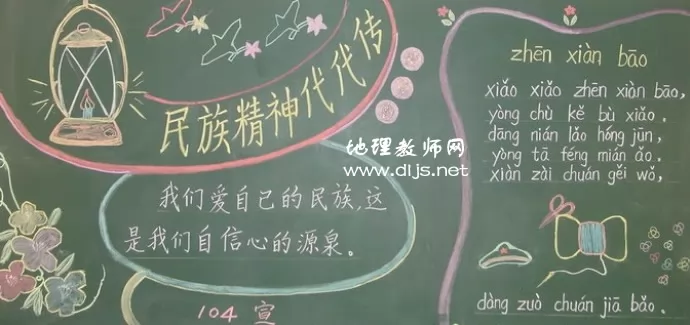 民族精神代代传
地理教师网
www.dljs.net
我们爱自己的民族,这
是我们自信心的源泉。
104 宣
zhēn xiàn bāo
xiǎo xiǎo zhēn xiàn bāo,
yòng chù kě bù xiǎo.
dāng nián lǎo hóng jūn,
yòng tā féng mián ǎo.
xiàn zài chuán gěi wǒ,
dàng zuò chuán jiā bǎo.